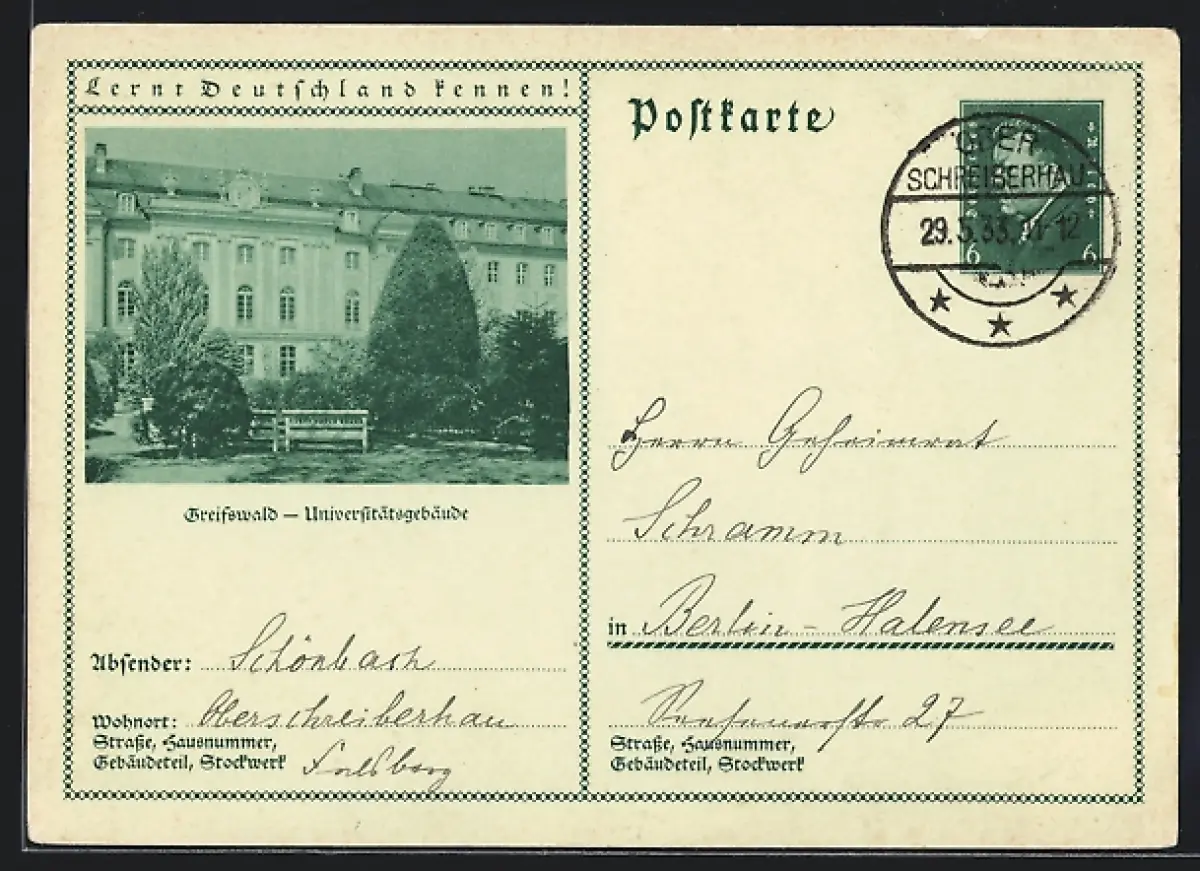 Lernt Deutschland kennen!
Greifswald — Universitätsgebäude
Absender: Schönbach
Wohnort: Oberschreiberhau
Straße, Hausnummer,
Gebäudeteil, Stockwerk
Postkarte
6 6
ODER
SCHREIBERHAU
29.3.33. 11-12
Herrn Geheimrat
Schramm
in Berlin-Halensee
27
Straße, Hausnummer,
Gebäudeteil, Stockwerk